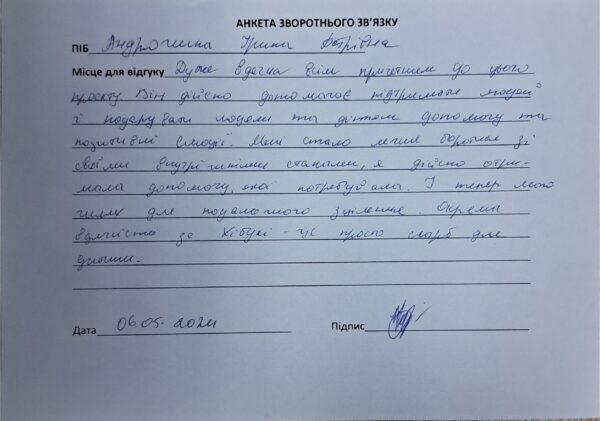 АНКЕТА ЗВОРОТНЬОГО ЗВ'ЯЗКУ
ПІБ Ірина
Місце для відгуку Дуже вдячна всім причетним до цього
проєкту. Він дійсно допомагає підтримати людей
і подарувати людям та дітям допомогу та
позитивні емоції. Мені стало легше боротися зі
своїми внутрішніми станами, я дійсно отри-
мала допомогу, якої потребувала. І тепер маю
для подальшого зцілення. Окрема
вдячність за Хібукі - це просто скарб для
дитини.
Дата 06.05.2024 Підпис